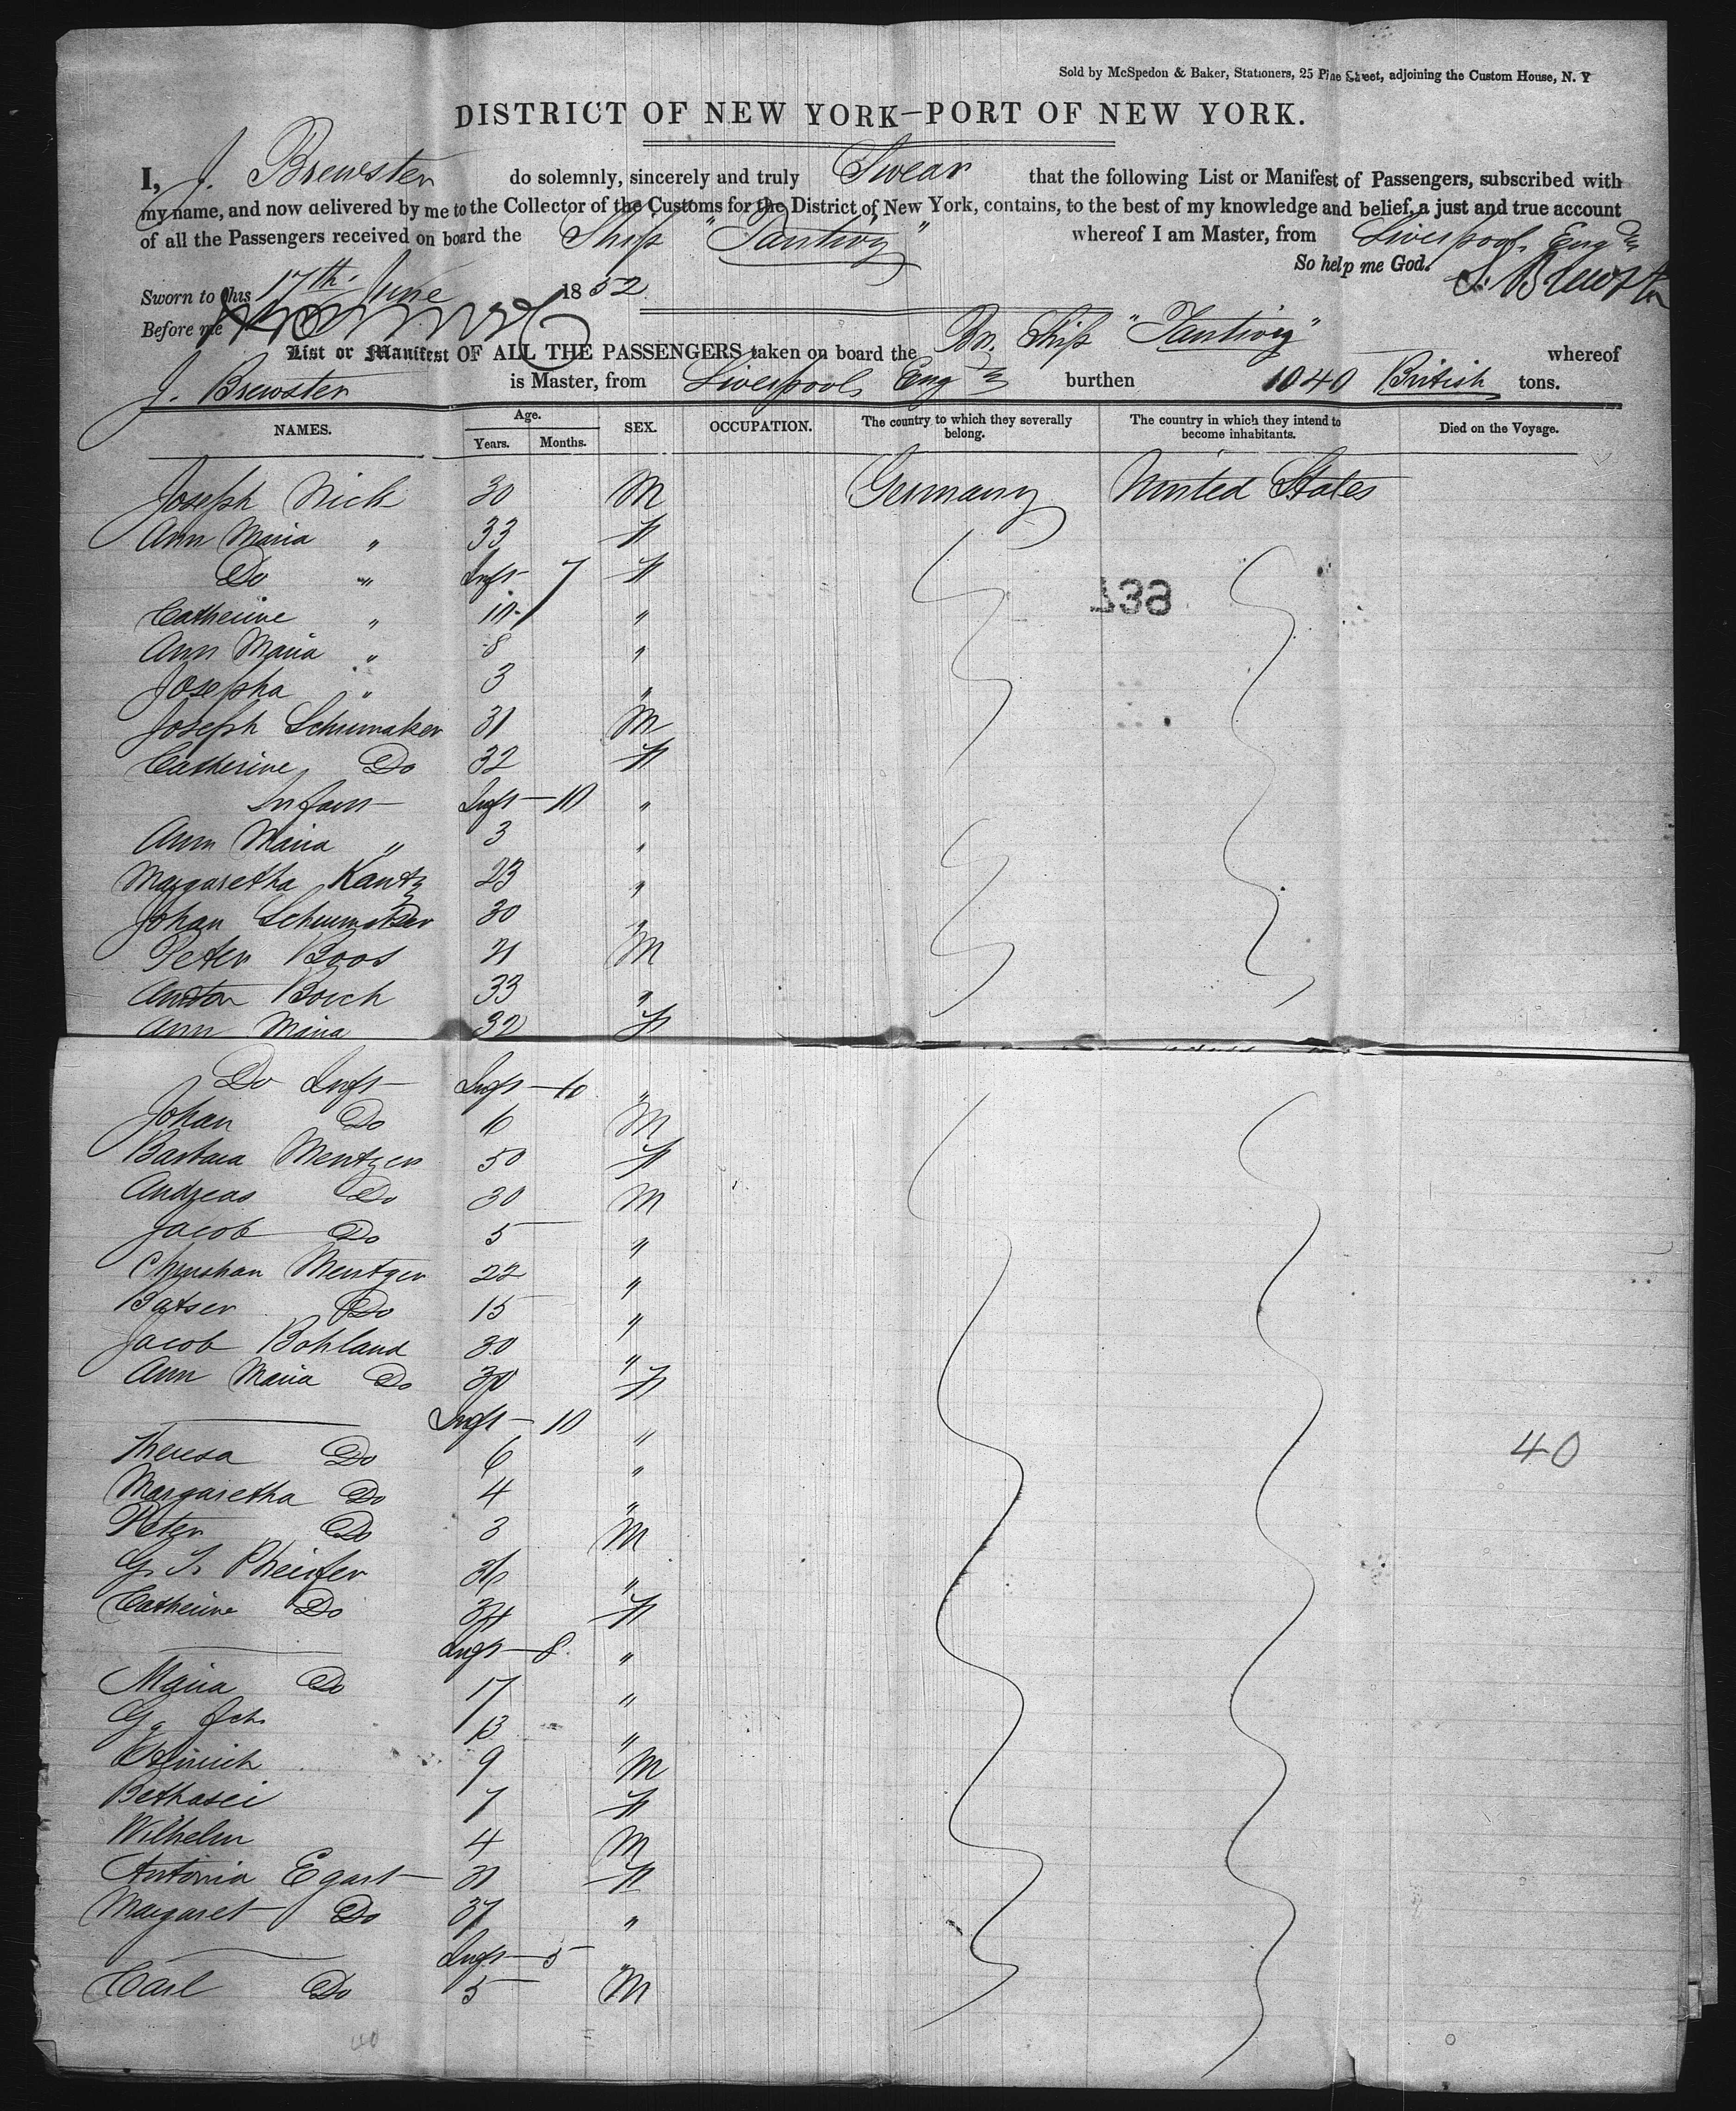 Sold by McSpedon & Baker, Stationers, 25 Pine Street, adjoining the Custom House, N. Y
DISTRICT OF NEW YORK—PORT OF NEW YORK.
I, J. Brewster do solemnly, sincerely and truly Swear that the following List or Manifest of Passengers, subscribed with
my name, and now delivered by me to the Collector of the Customs for the District of New York, contains, to the best of my knowledge and belief, a just and true account
of all the Passengers received on board the Ship "Tantivy" whereof I am Master, from Liverpool, Engd
So help me God. J. Brewster
Sworn to this 17th June 1852
Before me
List or Manifest OF ALL THE PASSENGERS taken on board the Br. Ship "Tantivy" whereof
J. Brewster is Master, from Liverpool, Engd burthen 1040 British tons.
NAMES. Age. Years. Months. SEX. OCCUPATION. The country to which they severally belong. The country in which they intend to become inhabitants. Died on the Voyage.
Joseph Nick 30 M Germany United States
Ann Maria " 33 F
Do " Inft 7 F
Catherine " 10 "
Ann Maria " 8 "
Josepha " 3 "
Joseph Schumaker 31 M
Catherine Do 32 F
Infant Inft — 10 "
Ann Maria " 3 "
Margaretha Kantz 23 "
Johan 30 "
Peter Boos 21 M
Anton Boich 33 "
Ann Maria 32 F
Do Inft Inft — 10 "
Johan Do 6 M
Barbara Mentzer 50 F
Andreas Do 30 M
Jacob Do 5 "
Christian Mentzer 22 "
Batser Do 15 "
Jacob Bohland 30 "
Ann Maria Do 30 F
Inft — 10 "
Theresa Do 6 "
Margaretha Do 4 "
Peter Do 3 M
G. F. Pheifer 36 "
Catherine Do 34 F
Inft — 8 "
Maria Do 17 "
G. 13 "
Heinrich 9 M
7 F
Wilhelm 4 M
Antonia Egart 31 F
Margaret Do 37 "
Inft — 5 "
Carl Do 5 M
40
40